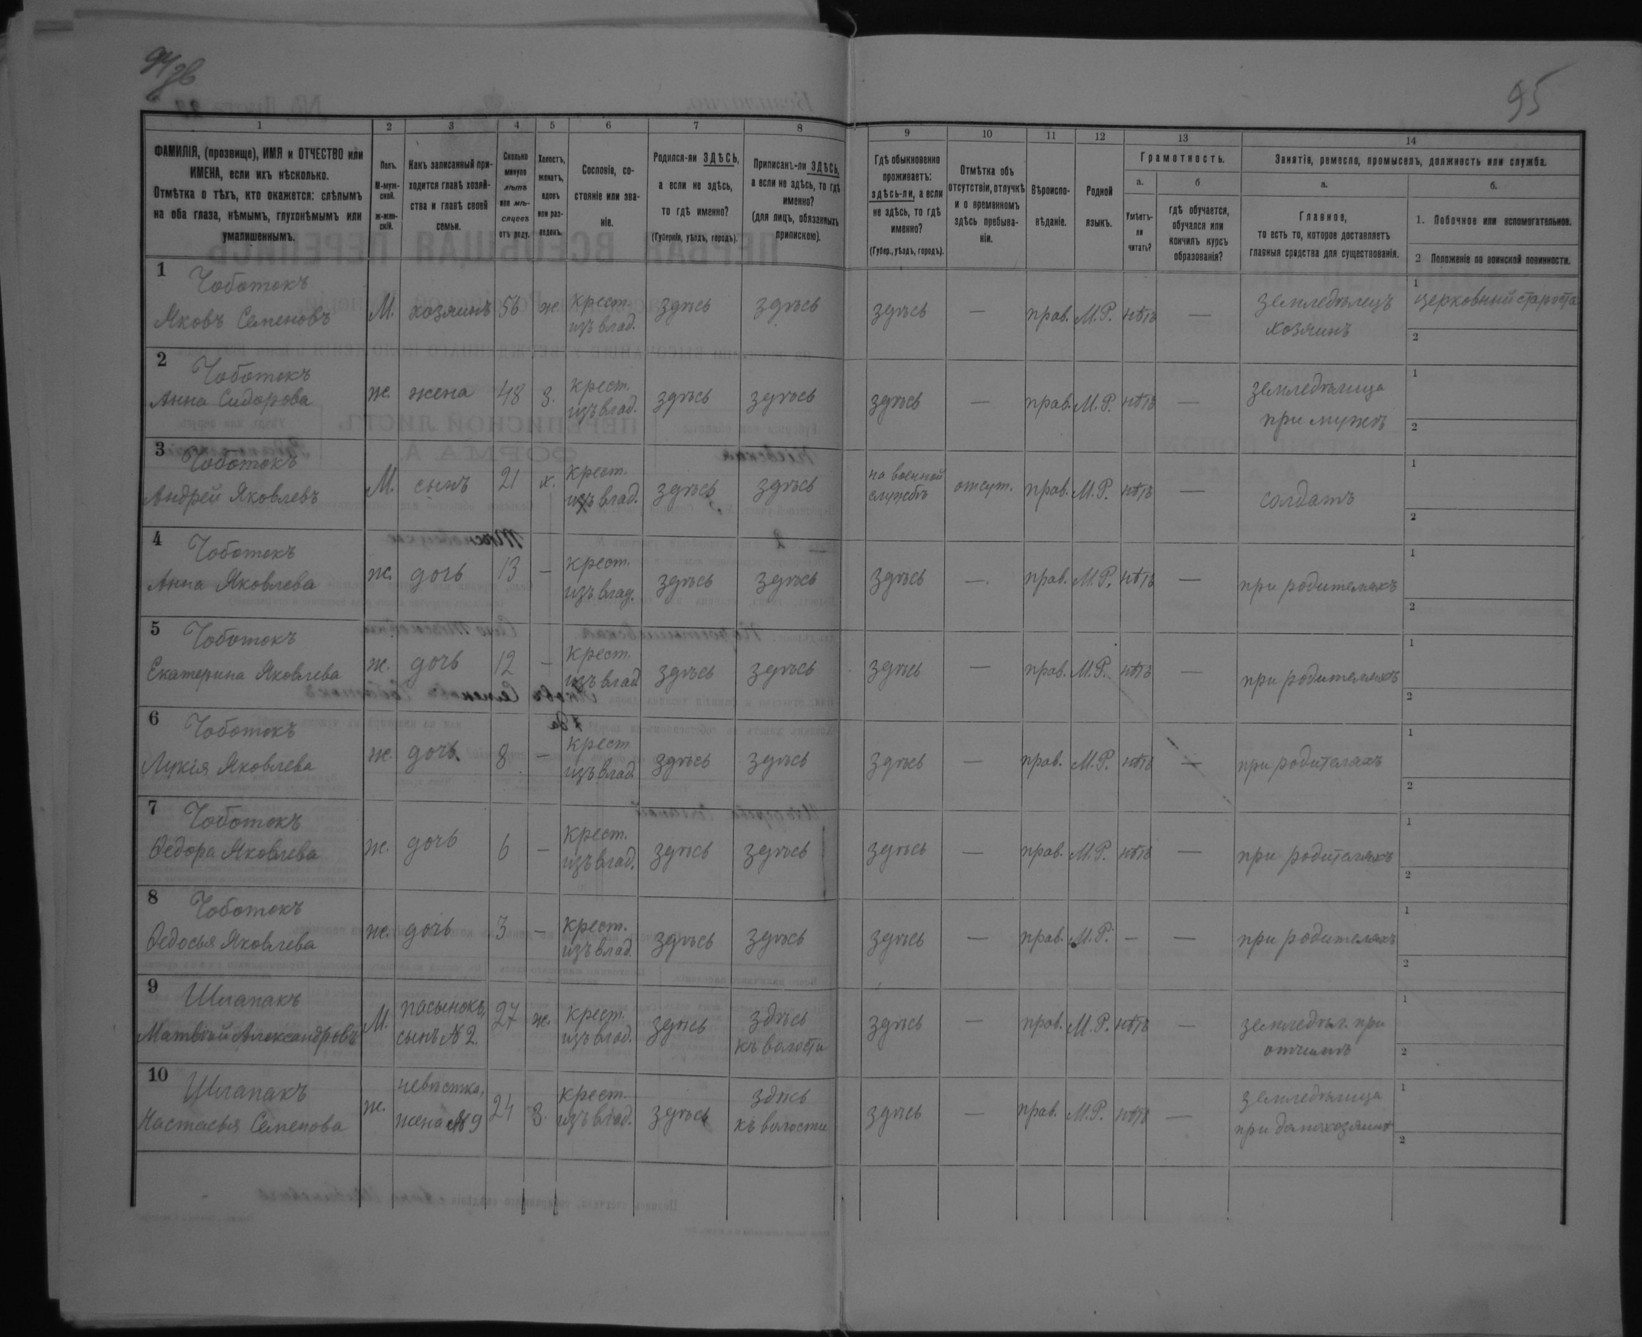 95
1 2 3 4 5 6 7 8 9 10 11 12 13 14
ФАМИЛІЯ, (прозвище), ИМЯ и ОТЧЕСТВО или ИМЕНА, если ихъ нѣсколько.
Отмѣтка о тѣхъ, кто окажется: слѣпымъ на оба глаза, нѣмымъ, глухонѣмымъ или умалишеннымъ.
Полъ. М-мужской. Ж-женскій.
Какъ записанный приходится главѣ хозяйства и главѣ своей семьи.
Сколько минуло лѣтъ или мѣсяцевъ отъ роду.
Холостъ, женатъ, вдовъ или разведенъ.
Сословіе, состояніе или званіе.
Родился-ли ЗДѢСЬ, а если не здѣсь, то гдѣ именно?
(Губернія, уѣздъ, городъ).
Приписанъ-ли ЗДѢСЬ, а если не здѣсь, то гдѣ именно?
(для лицъ, обязанныхъ припискою).
Гдѣ обыкновенно проживаетъ: здѣсь-ли, а если не здѣсь, то гдѣ именно?
(Губер., уѣздъ, городъ).
Отмѣтка объ отсутствіи, отлучкѣ и о временномъ здѣсь пребываніи.
Вѣроисповѣданіе.
Родной языкъ.
Грамотность.
а. Умѣетъ-ли читать?
б. гдѣ обучается, обучался или кончилъ курсъ образованія?
Занятіе, ремесло, промыселъ, должность или служба.
а. Главное,
то есть то, которое доставляетъ главныя средства для существованія.
б.
1. Побочное или вспомогательное.
2 Положеніе по воинской повинности.
1 Чоботокъ
Яковъ Семеновъ М. хозяинъ 56 ж. крест. изъ влад. здѣсь здѣсь здѣсь — прав. М.Р. нѣтъ — земледѣлецъ хозяинъ 1 церковный староста 2
2 Чоботокъ
Анна Сидорова ж. жена 48 з. крест. изъ влад. здѣсь здѣсь здѣсь — прав. М.Р. нѣтъ — земледѣлица при мужѣ 1 2
3 Чоботокъ
Андрей Яковлевъ М. сынъ 21 х. крест. изъ влад. здѣсь здѣсь на военной службѣ отсут. прав. М.Р. нѣтъ — солдатъ 1 2
4 Чоботокъ
Анна Яковлева ж. дочь 13 — крест. изъ влад. здѣсь здѣсь здѣсь — прав. М.Р. нѣтъ — при родителяхъ 1 2
5 Чоботокъ
Екатерина Яковлева ж. дочь 12 — крест. изъ влад. здѣсь здѣсь здѣсь — прав. М.Р. нѣтъ — при родителяхъ 1 2
6 Чоботокъ
Лукія Яковлева ж. дочь 8 — крест. изъ влад. здѣсь здѣсь здѣсь — прав. М.Р. нѣтъ — при родителяхъ 1 2
7 Чоботокъ
Ѳедора Яковлева ж. дочь 6 — крест. изъ влад. здѣсь здѣсь здѣсь — прав. М.Р. нѣтъ — при родителяхъ 1 2
8 Чоботокъ
Ѳедосья Яковлева ж. дочь 3 — крест. изъ влад. здѣсь здѣсь здѣсь — прав. М.Р. — — при родителяхъ 1 2
9 Шлапакъ
Матвѣй Александровъ М. пасынокъ, сынъ № 2. 27 ж. крест. изъ влад. здѣсь здѣсь къ волости здѣсь — прав. М.Р. нѣтъ — земледѣл. при отчимѣ 1 2
10 Шлапакъ
Настасья Семенова ж. невѣстка, жена № 9 24 з. крест. изъ влад. здѣсь здѣсь къ волости здѣсь — прав. М.Р. нѣтъ — земледѣлица при домохозяинѣ 1 2